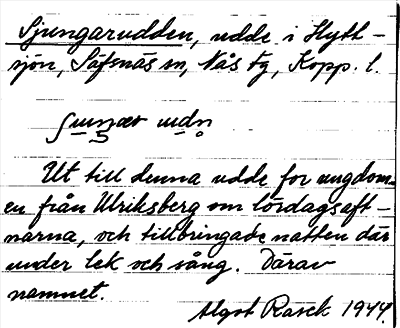 Sjungarudden, udde i Hytt-
sjön, Säfsnäs sn, Nås tg, Kopp. l.
Ut till denna udde for ungdom-
en från Ulriksberg om lördagsaft-
narna, och tillbringade natten där
under lek och sång. Därav
namnet.
Algot Rasck 1944.